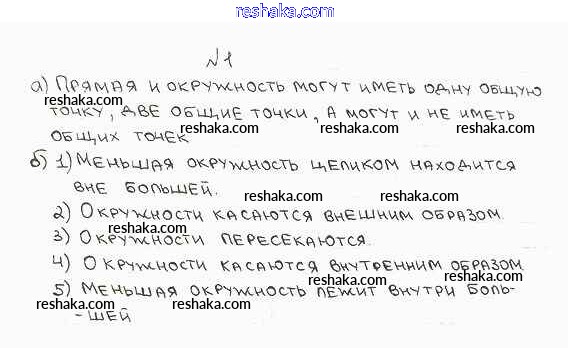 reshaka.com
№1
а) Прямая и окружность могут иметь одну общую
reshaka.com reshaka.com reshaka.com
точку, две общие точки, а могут и не иметь
reshaka.com reshaka.com
общих точек
б) 1) Меньшая окружность целиком находится
вне большей.
reshaka.com reshaka.com
2) Окружности касаются внешним образом.
3) Окружности пересекаются.
reshaka.com reshaka.com reshaka.com
4) Окружности касаются внутренним образом.
5) Меньшая окружность лежит внутри боль-
reshaka.com reshaka.com reshaka.com
-шей